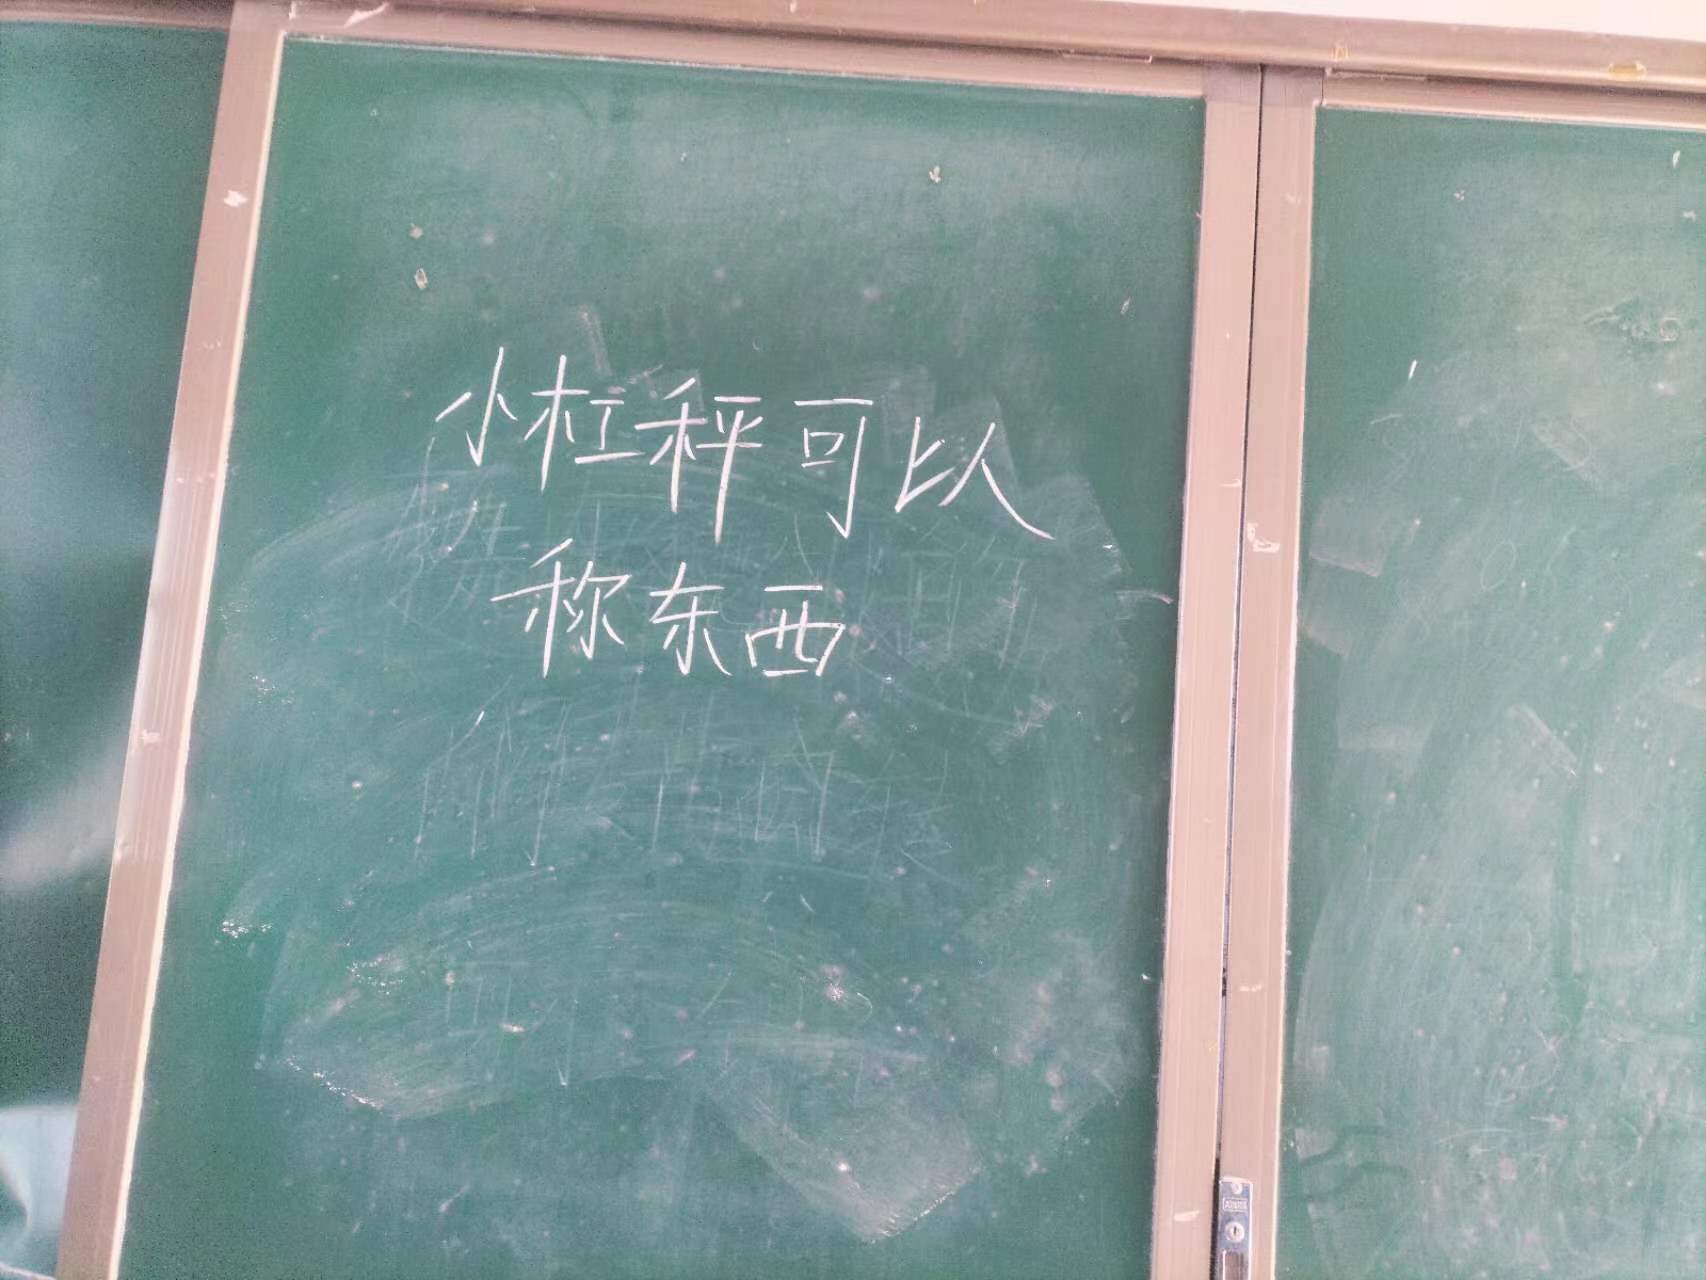 小杠秤可以
称东西